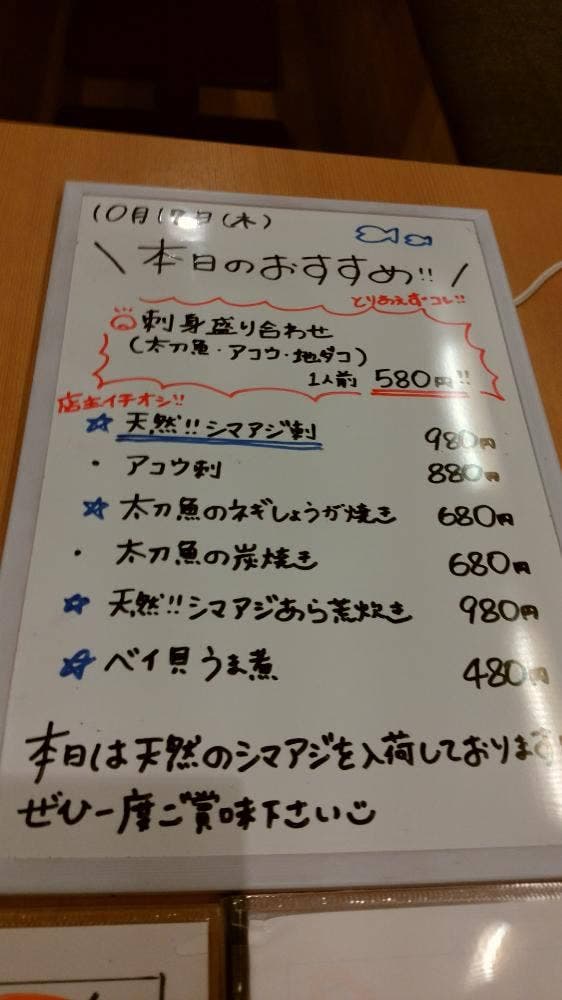 10月17日(木)
\ 本日のおすすめ!! /
とりあえずコレ!!
刺身盛り合わせ
(太刀魚・アコウ・地ダコ)
1人前 580円!!
店主イチオシ!!
☆ 天然!!シマアジ刺 980円
・ アコウ刺 880円
☆ 太刀魚のネギしょうが焼き 680円
・ 太刀魚の炭焼き 680円
☆ 天然!!シマアジあら荒炊き 980円
☆ ベイ貝うま煮 480円
本日は天然のシマアジを入荷しております!
ぜひ一度ご賞味下さい